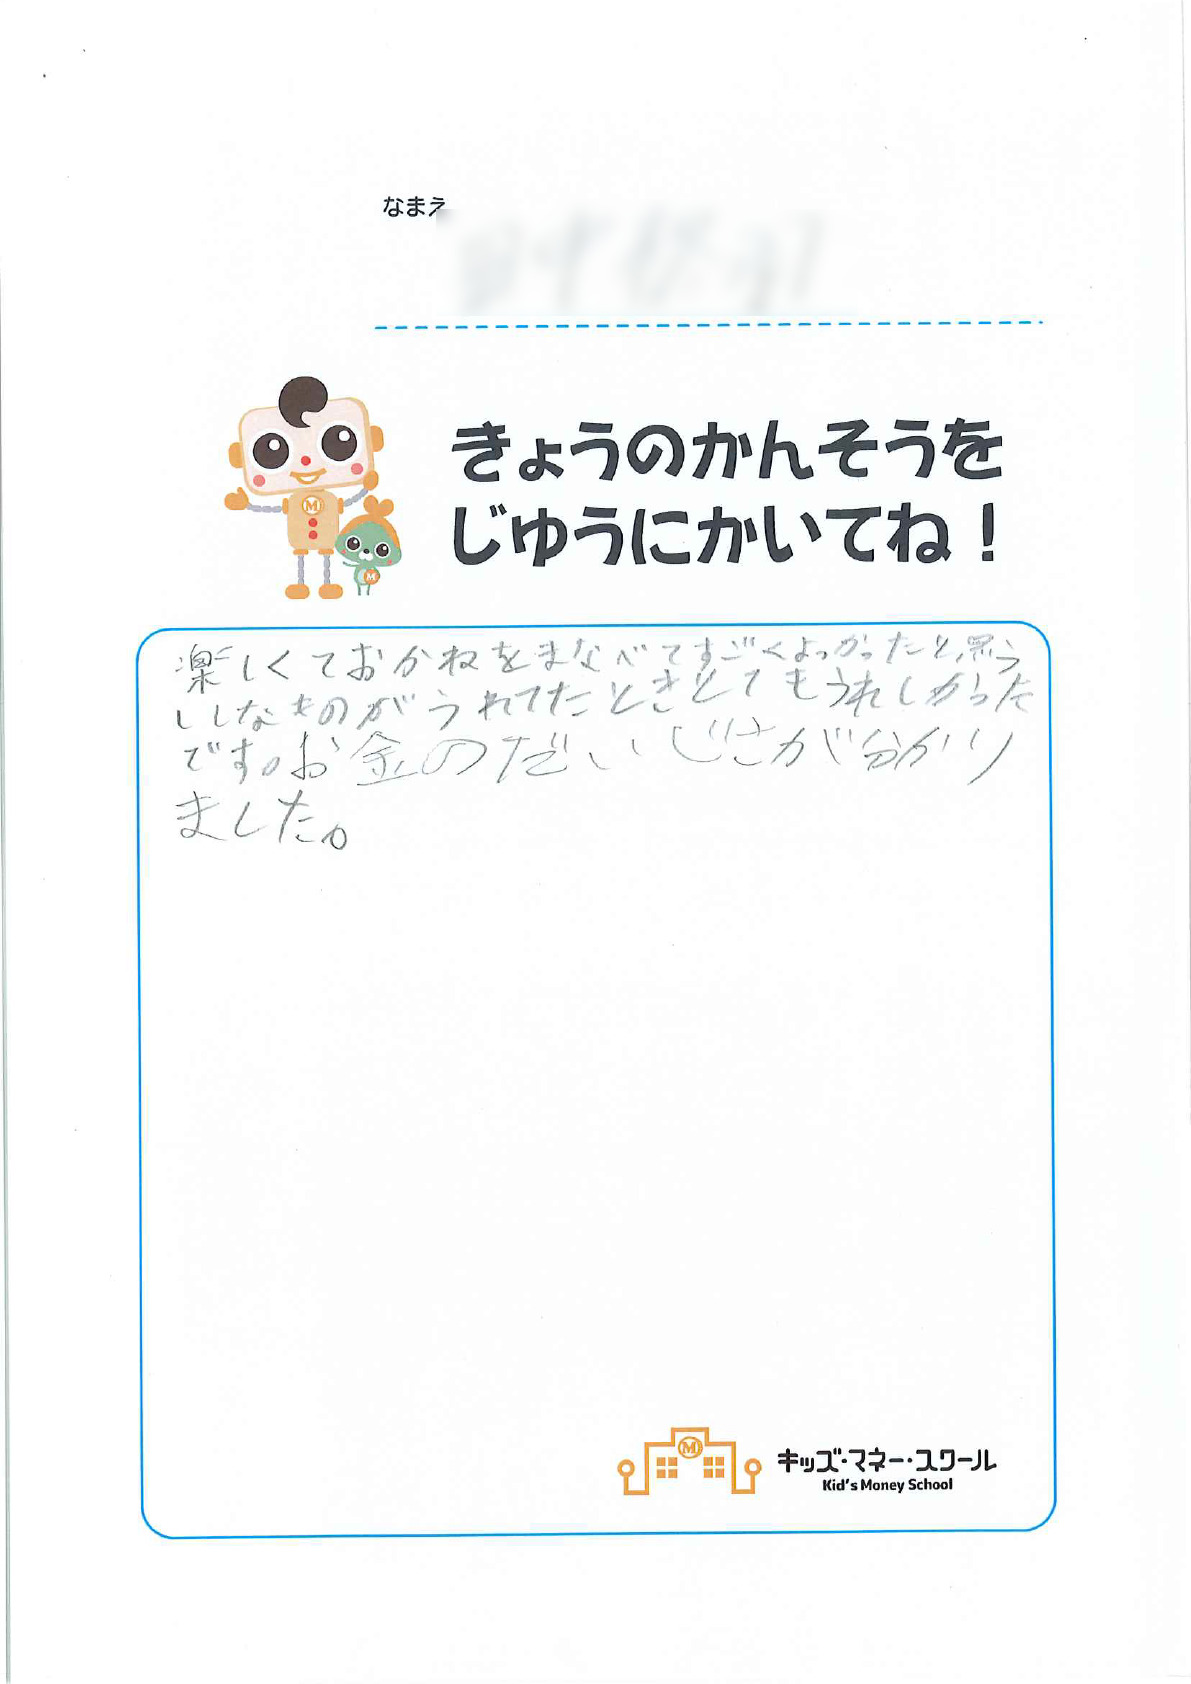 なまえ
きょうのかんそうを
じゆうにかいてね！
楽しくておかねをまなべてすごくよかったと思う
しなものがうれてたときとてもうれしかった
です。お金のだいじさが分かり
ました。
キッズ・マネー・スクール
Kid's Money School